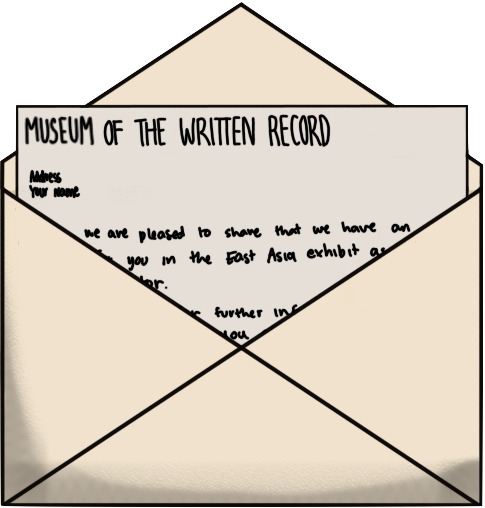 MUSEUM OF THE WRITTEN RECORD
Address
Your Name
we are pleased to share that we have an
you in the East Asia exhibit as
further
you